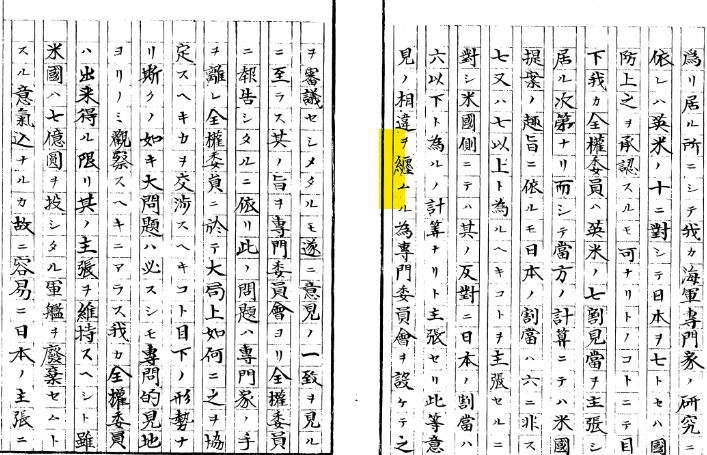 為リ居ル所ニシテ我カ海軍專門家ノ研究ニ
依レハ英米ノ十ニ對シテ日本ヲ七トセハ國
防上之ヲ承認スルモ可ナリトノコトニテ目
下我カ全權委員ハ英米ノ七割見當ヲ主張シ
居ル次第ナリ而シテ當方ノ計算ニテハ米國
提案ノ趣旨ニ依ルモ日本ノ割當ハ六ニ非ス
七又ハ七以上ト為ルヘキコトヲ主張セルニ
對シ米國側ニテハ其ノ反對ニ日本ノ割當ハ
六以下ト為ルノ計算ナリト主張セリ此等意
見ノ相違ヲ纒ムル為專門委員會ヲ設ケテ之
ヲ審議セシメタルモ遂ニ意見ノ一致ヲ見ル
ニ至ラス其ノ旨ヲ專門委員會ヨリ全權委員
ニ報告シタルニ依リ此ノ問題ハ專門家ノ手
ヲ離レ全權委員ニ於テ大局上如何ニ之ヲ協
定スヘキカヲ交渉スヘキコト目下ノ形勢ナ
リ斯クノ如キ大問題ハ必スシモ專問的見地
ヨリノミ觀察スヘキニアラス我カ全權委員
ハ出来得ル限リ其ノ主張ヲ維持スヘシト雖
米國ハ七億圓ヲ投シタル軍艦ヲ廢棄セムト
スル意氣込ナルカ故ニ容易ニ日本ノ主張ニ